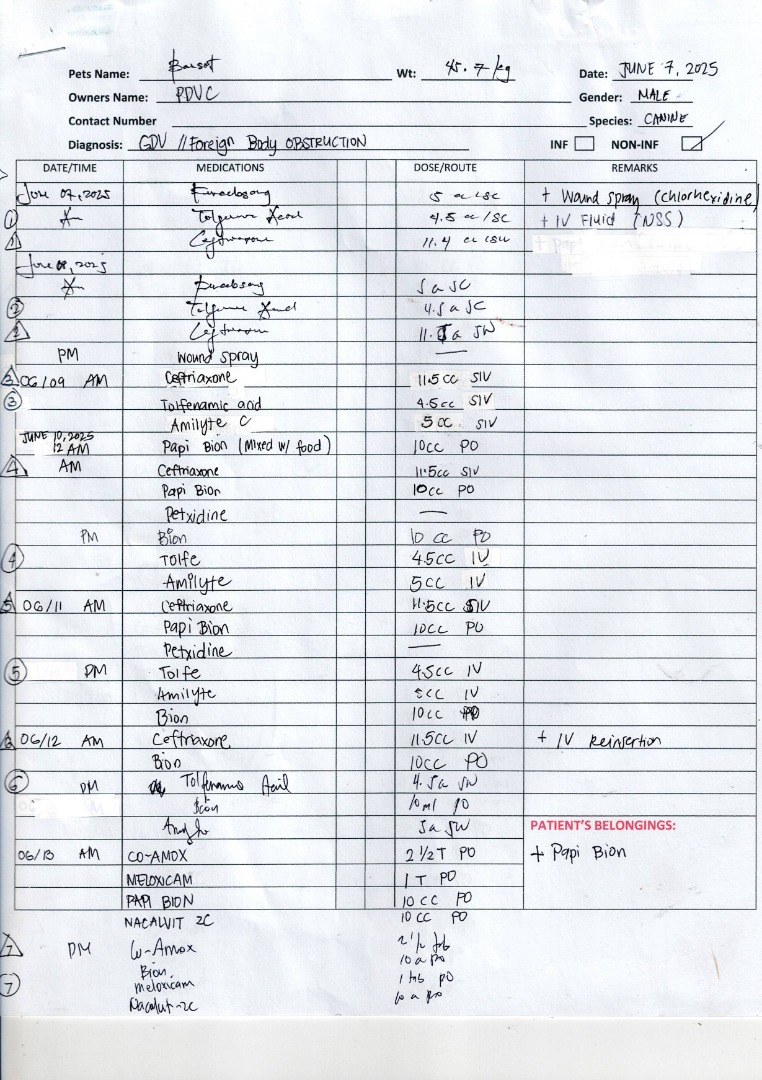 Pets Name: Wt: 45.7 kg Date: JUNE 7, 2025
Owners Name: PDVC Gender: MALE
Contact Number Species: CANINE
Diagnosis: GDV // Foreign Body OBSTRUCTION INF NON-INF
DATE/TIME MEDICATIONS DOSE/ROUTE REMARKS
June 07, 2025 5 cc /SC + Wound spray (chlorhexidine)
1 Tolfenamic Acid 4.5 cc /SC + IV Fluid (NSS)
1 Ceftriaxone 11.4 cc
June 08, 2025
5 cc SC
2 Tolfenamic Acid 4.5 cc SC
2 Ceftriaxone
PM Wound spray —
3 06/09 AM Ceftriaxone 11.5cc SIV
3 Tolfenamic acid 4.5cc SIV
Amilyte C 5cc SIV
JUNE 10, 2025
12 AM Papi Bion (Mixed w/ food) 10cc PO
4 AM Ceftriaxone 11.5cc SIV
Papi Bion 10cc PO
Petxidine —
PM Bion 10 cc PO
4 Tolfe 4.5cc IV
Amilyte 5cc IV
5 06/11 AM Ceftriaxone 11.5cc SIV
Papi Bion 10cc PO
Petxidine —
5 PM Tolfe 4.5cc IV
Amilyte 5cc IV
Bion 10cc PO
6 06/12 AM Ceftriaxone 11.5cc IV + IV Reinsertion
Bion 10cc PO
6 PM Tolfenamic Acid
Bion 10ml PO
PATIENT'S BELONGINGS:
06/13 AM CO-AMOX 2 1/2 T PO + Papi Bion
MELOXICAM 1 T PO
PAPI BION 10 cc PO
NACALVIT 2C 10 cc PO
7 PM Co-Amox 2 1/2 tab
Bion 10 cc PO
7 meloxicam 1 tab PO
Nacalvit-2C 10 cc PO